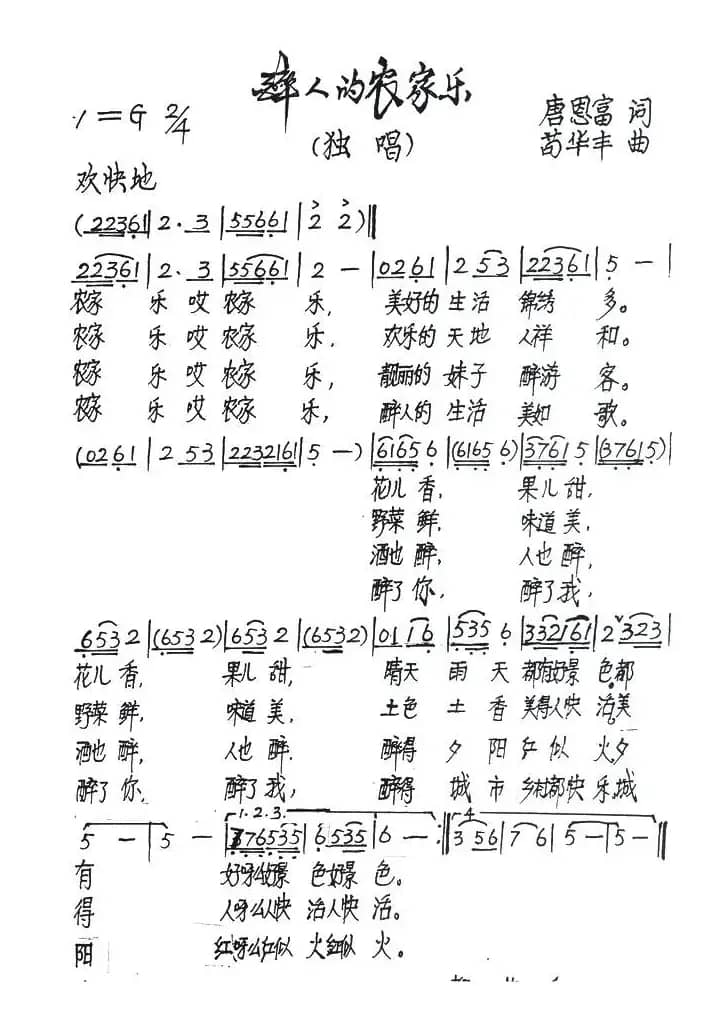 醉人的农家乐
1=G 2/4
(独 唱)
唐恩富 词
苟华丰 曲
欢快地
(22361|2·3|55661|2 2)‖
22361|2·3|55661|2 —|0261|2 53|22361|5 —|
农家 乐 哎 农家 乐, 美好的 生活 锦绣 多。
农家 乐 哎 农家 乐, 欢乐的 天地 人祥 和。
农家 乐 哎 农家 乐, 靓丽的 妹子 醉游 客。
农家 乐 哎 农家 乐, 醉人的 生活 美如 歌。
(0261|2 53|2232161|5 —)|6165 6|(6165 6)|3761 5|(3761 5)|
花儿 香, 果儿 甜,
野菜 鲜, 味道 美,
酒也 醉, 人也 醉,
醉了 你, 醉了 我,
653 2|(653 2)|653 2|(653 2)|01 1 6|535 6|332161|2 323|
花儿 香, 果儿 甜, 晴天 雨 天 都有好景 色,都
野菜 鲜, 味道 美, 土色 土 香 美得人快 活,美
酒也 醉, 人也 醉. 醉得 夕 阳 红 似 火,夕
醉了 你, 醉了 我, 醉得 城 市 乡村都快 乐,城
1.2.3. 4
5 —|5 —|376535|6 535|6 —:‖3 56|7 6|5 —|5 —‖
有 好呀么好景 色好景 色。
得 人呀么人快 活人快 活。
阳 红呀么红似 火红似 火。